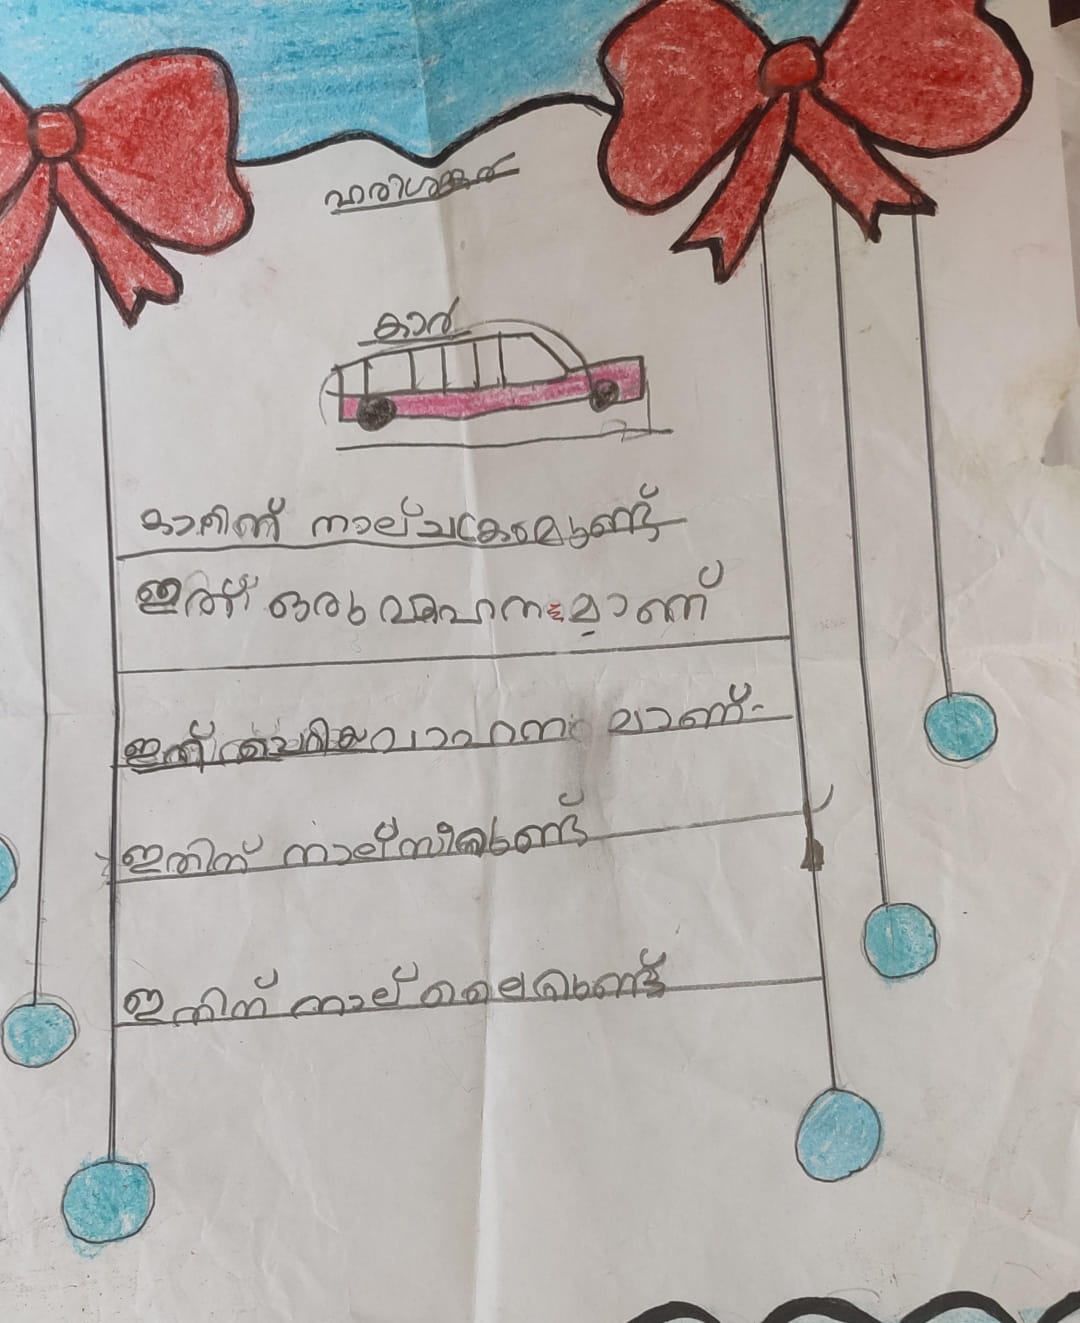 ഹരിശങ്കർ
കാർ
കാറിന് നാല് ചക്രമുണ്ട്
ഇത് ഒരു വാഹനമാണ്
ഇത് ചെറിയ വാഹനമാണ്.
ഇതിന് നാല് സീറ്റുണ്ട്
ഇതിന് നാല് ലൈറ്റുണ്ട്